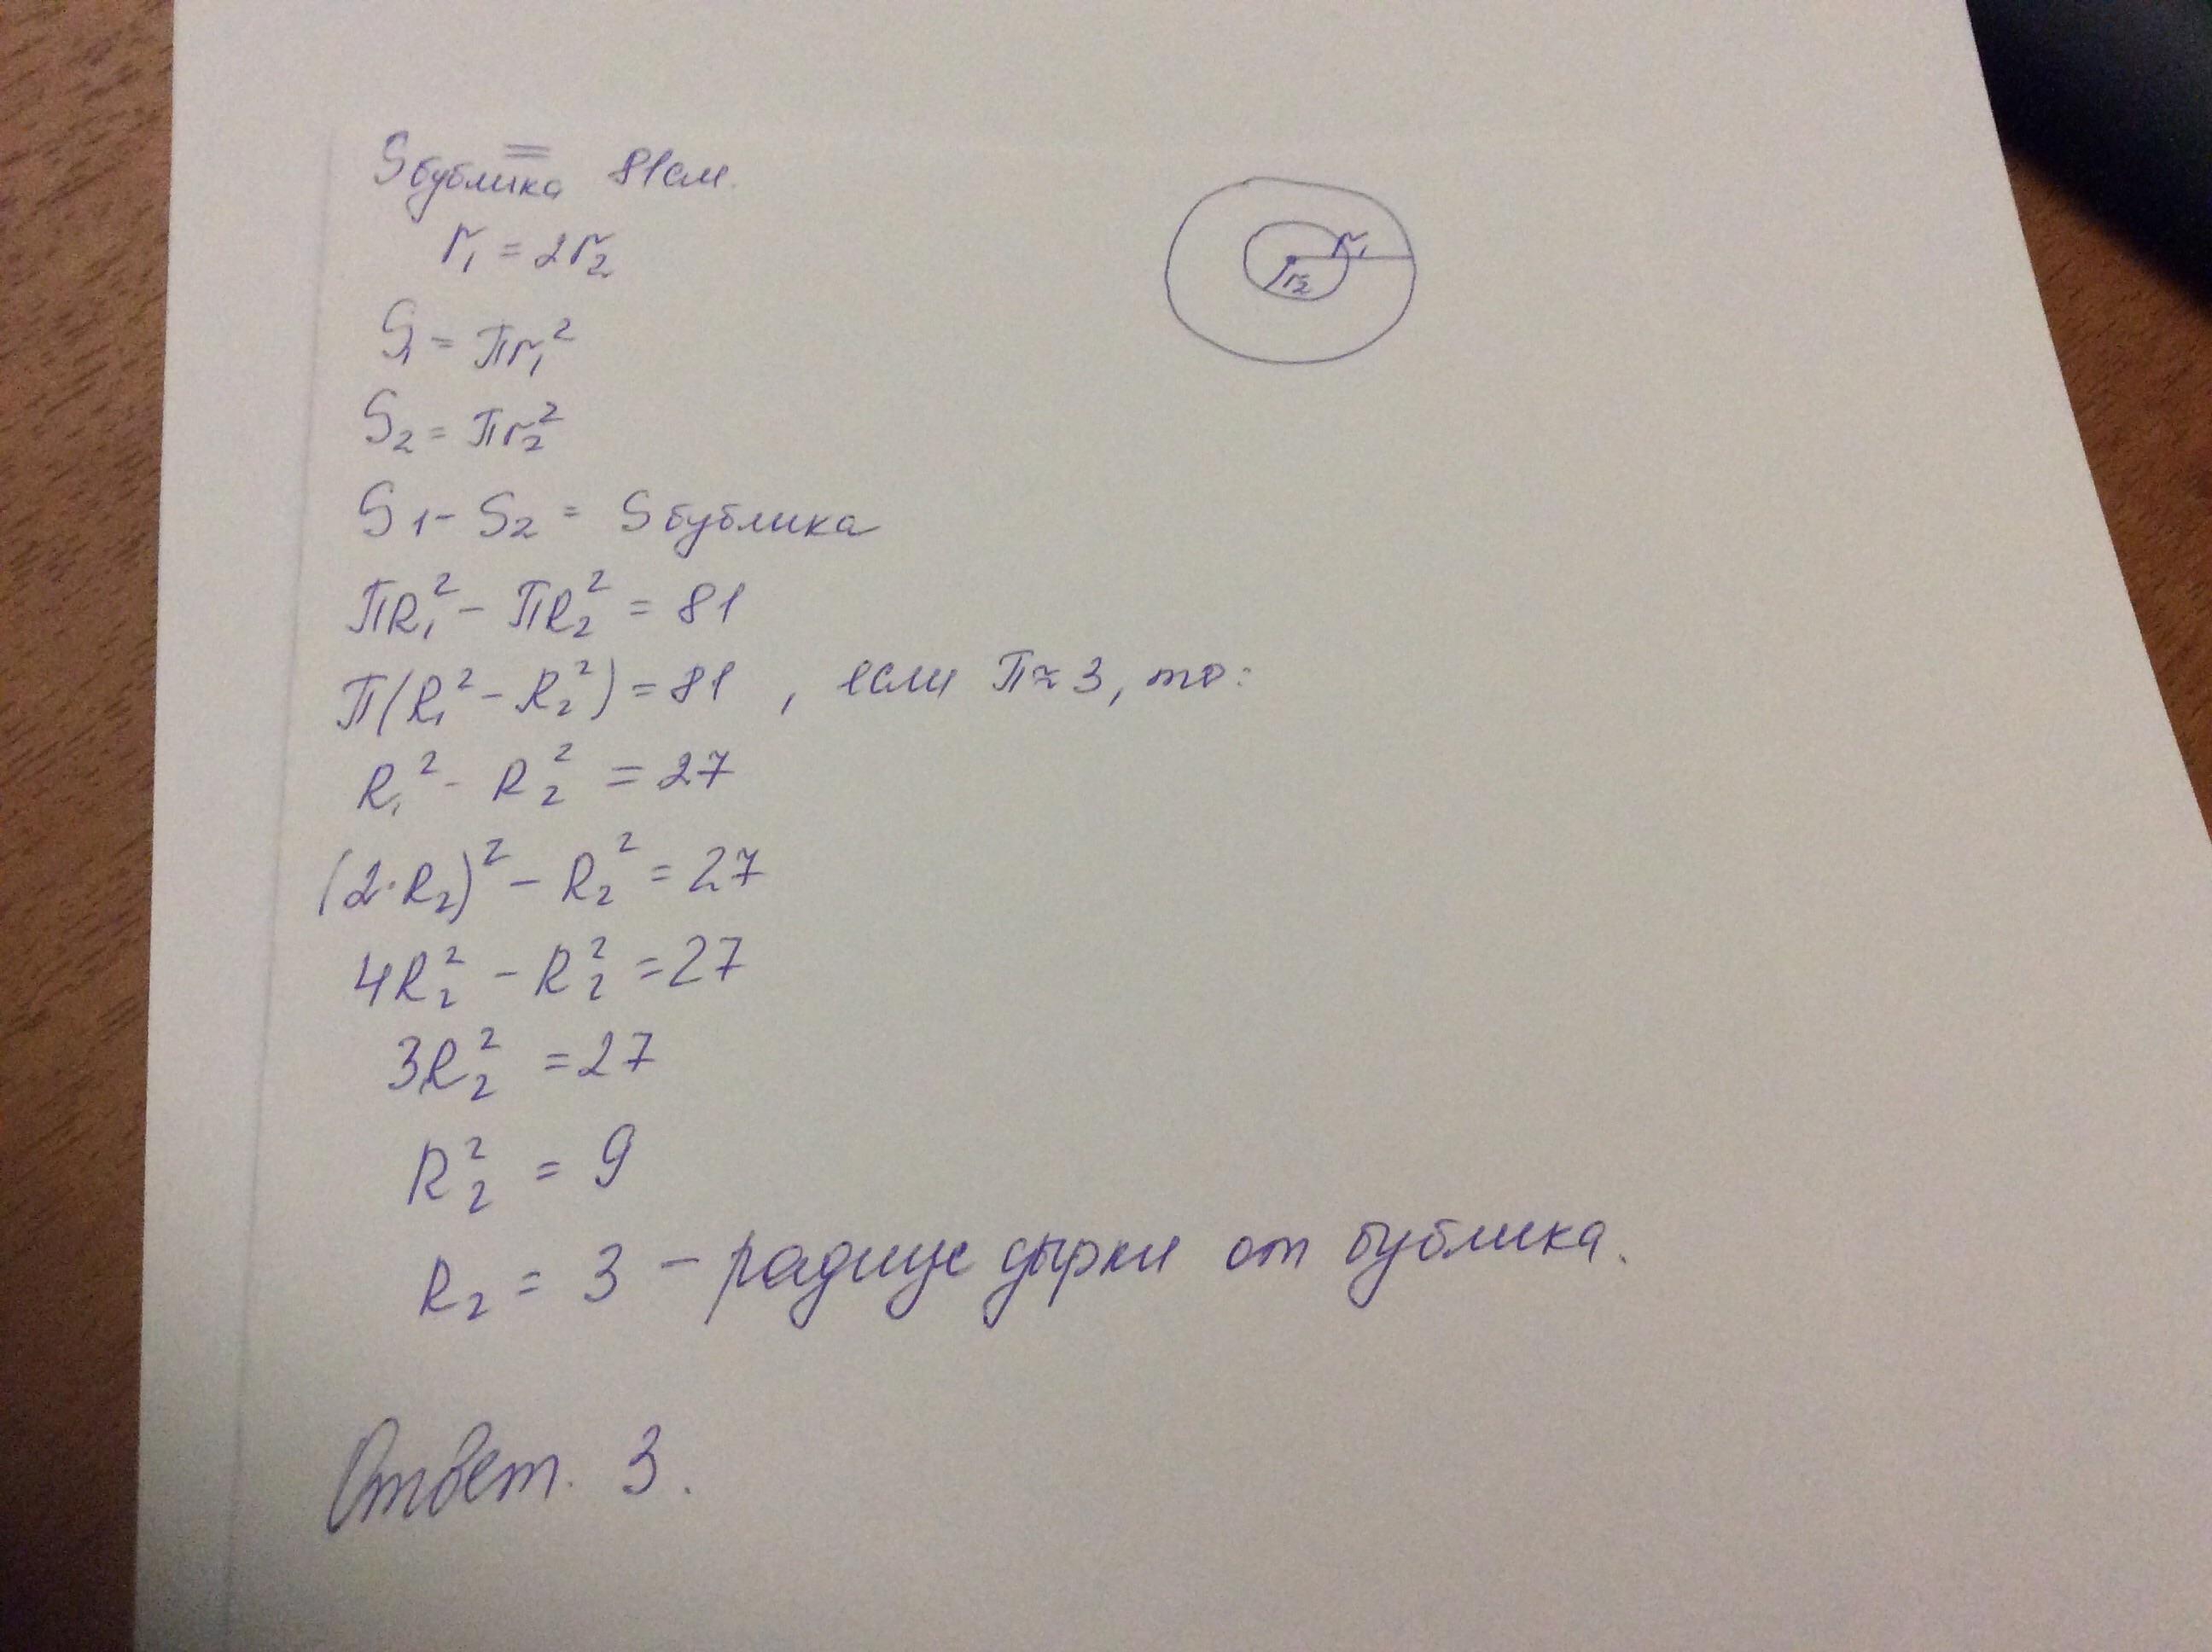 Sбублика = 81см.
r₁ = 2r₂
r₁
r₂
S₁ = πr₁²
S₂ = πr₂²
S₁ - S₂ = Sбублика
πR₁² - πR₂² = 81
π(R₁² - R₂²) = 81 , если π≈3, то:
R₁² - R₂² = 27
(2·R₂)² - R₂² = 27
4R₂² - R₂² = 27
3R₂² = 27
R₂² = 9
R₂ = 3 - радиус дырки от бублика.
Ответ. 3.